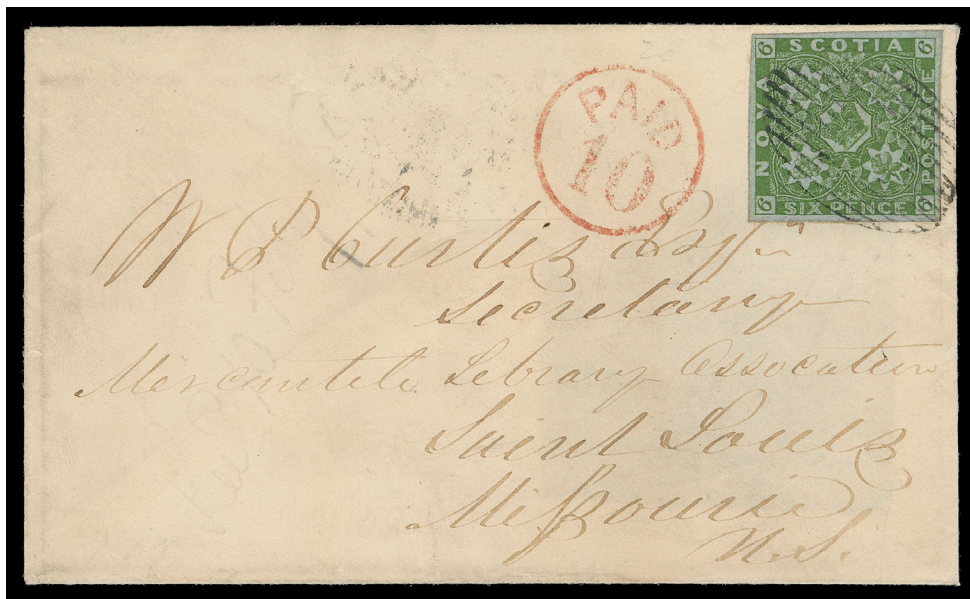 6 SCOTIA 6
NOVA
POSTAGE
6 SIX PENCE 6
PAID
10
W P Curtis Esqr
Secretary
Mercantile Library Association
Saint Louis
Missourie
U.S.